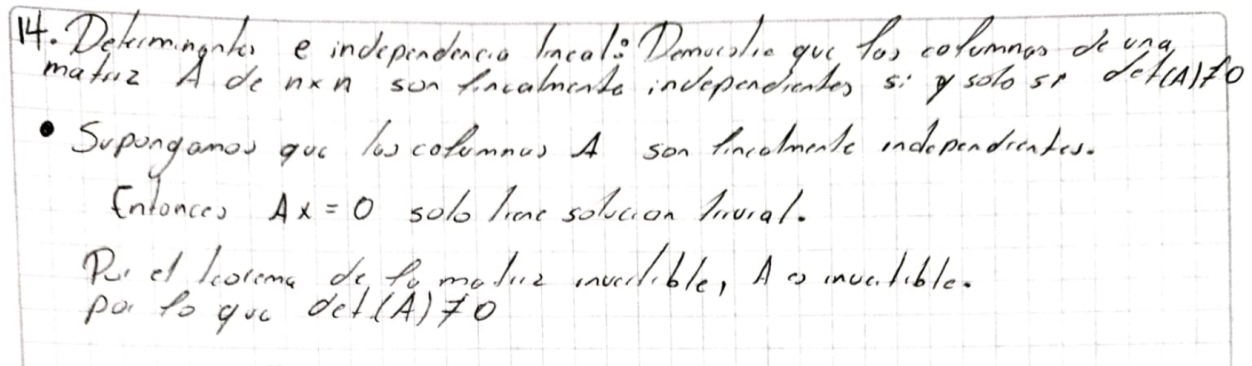 14. Determinantes e independencia lineal: Demuestre que las columnas de una
matriz A de n×n son linealmente independientes si y solo si det(A)≠0
• Supongamos que las columnas A son linealmente independientes.
Entonces Ax = 0 solo tiene solucion trivial.
Por el teorema de la matriz invertible, A es invertible.
por lo que det(A)≠0